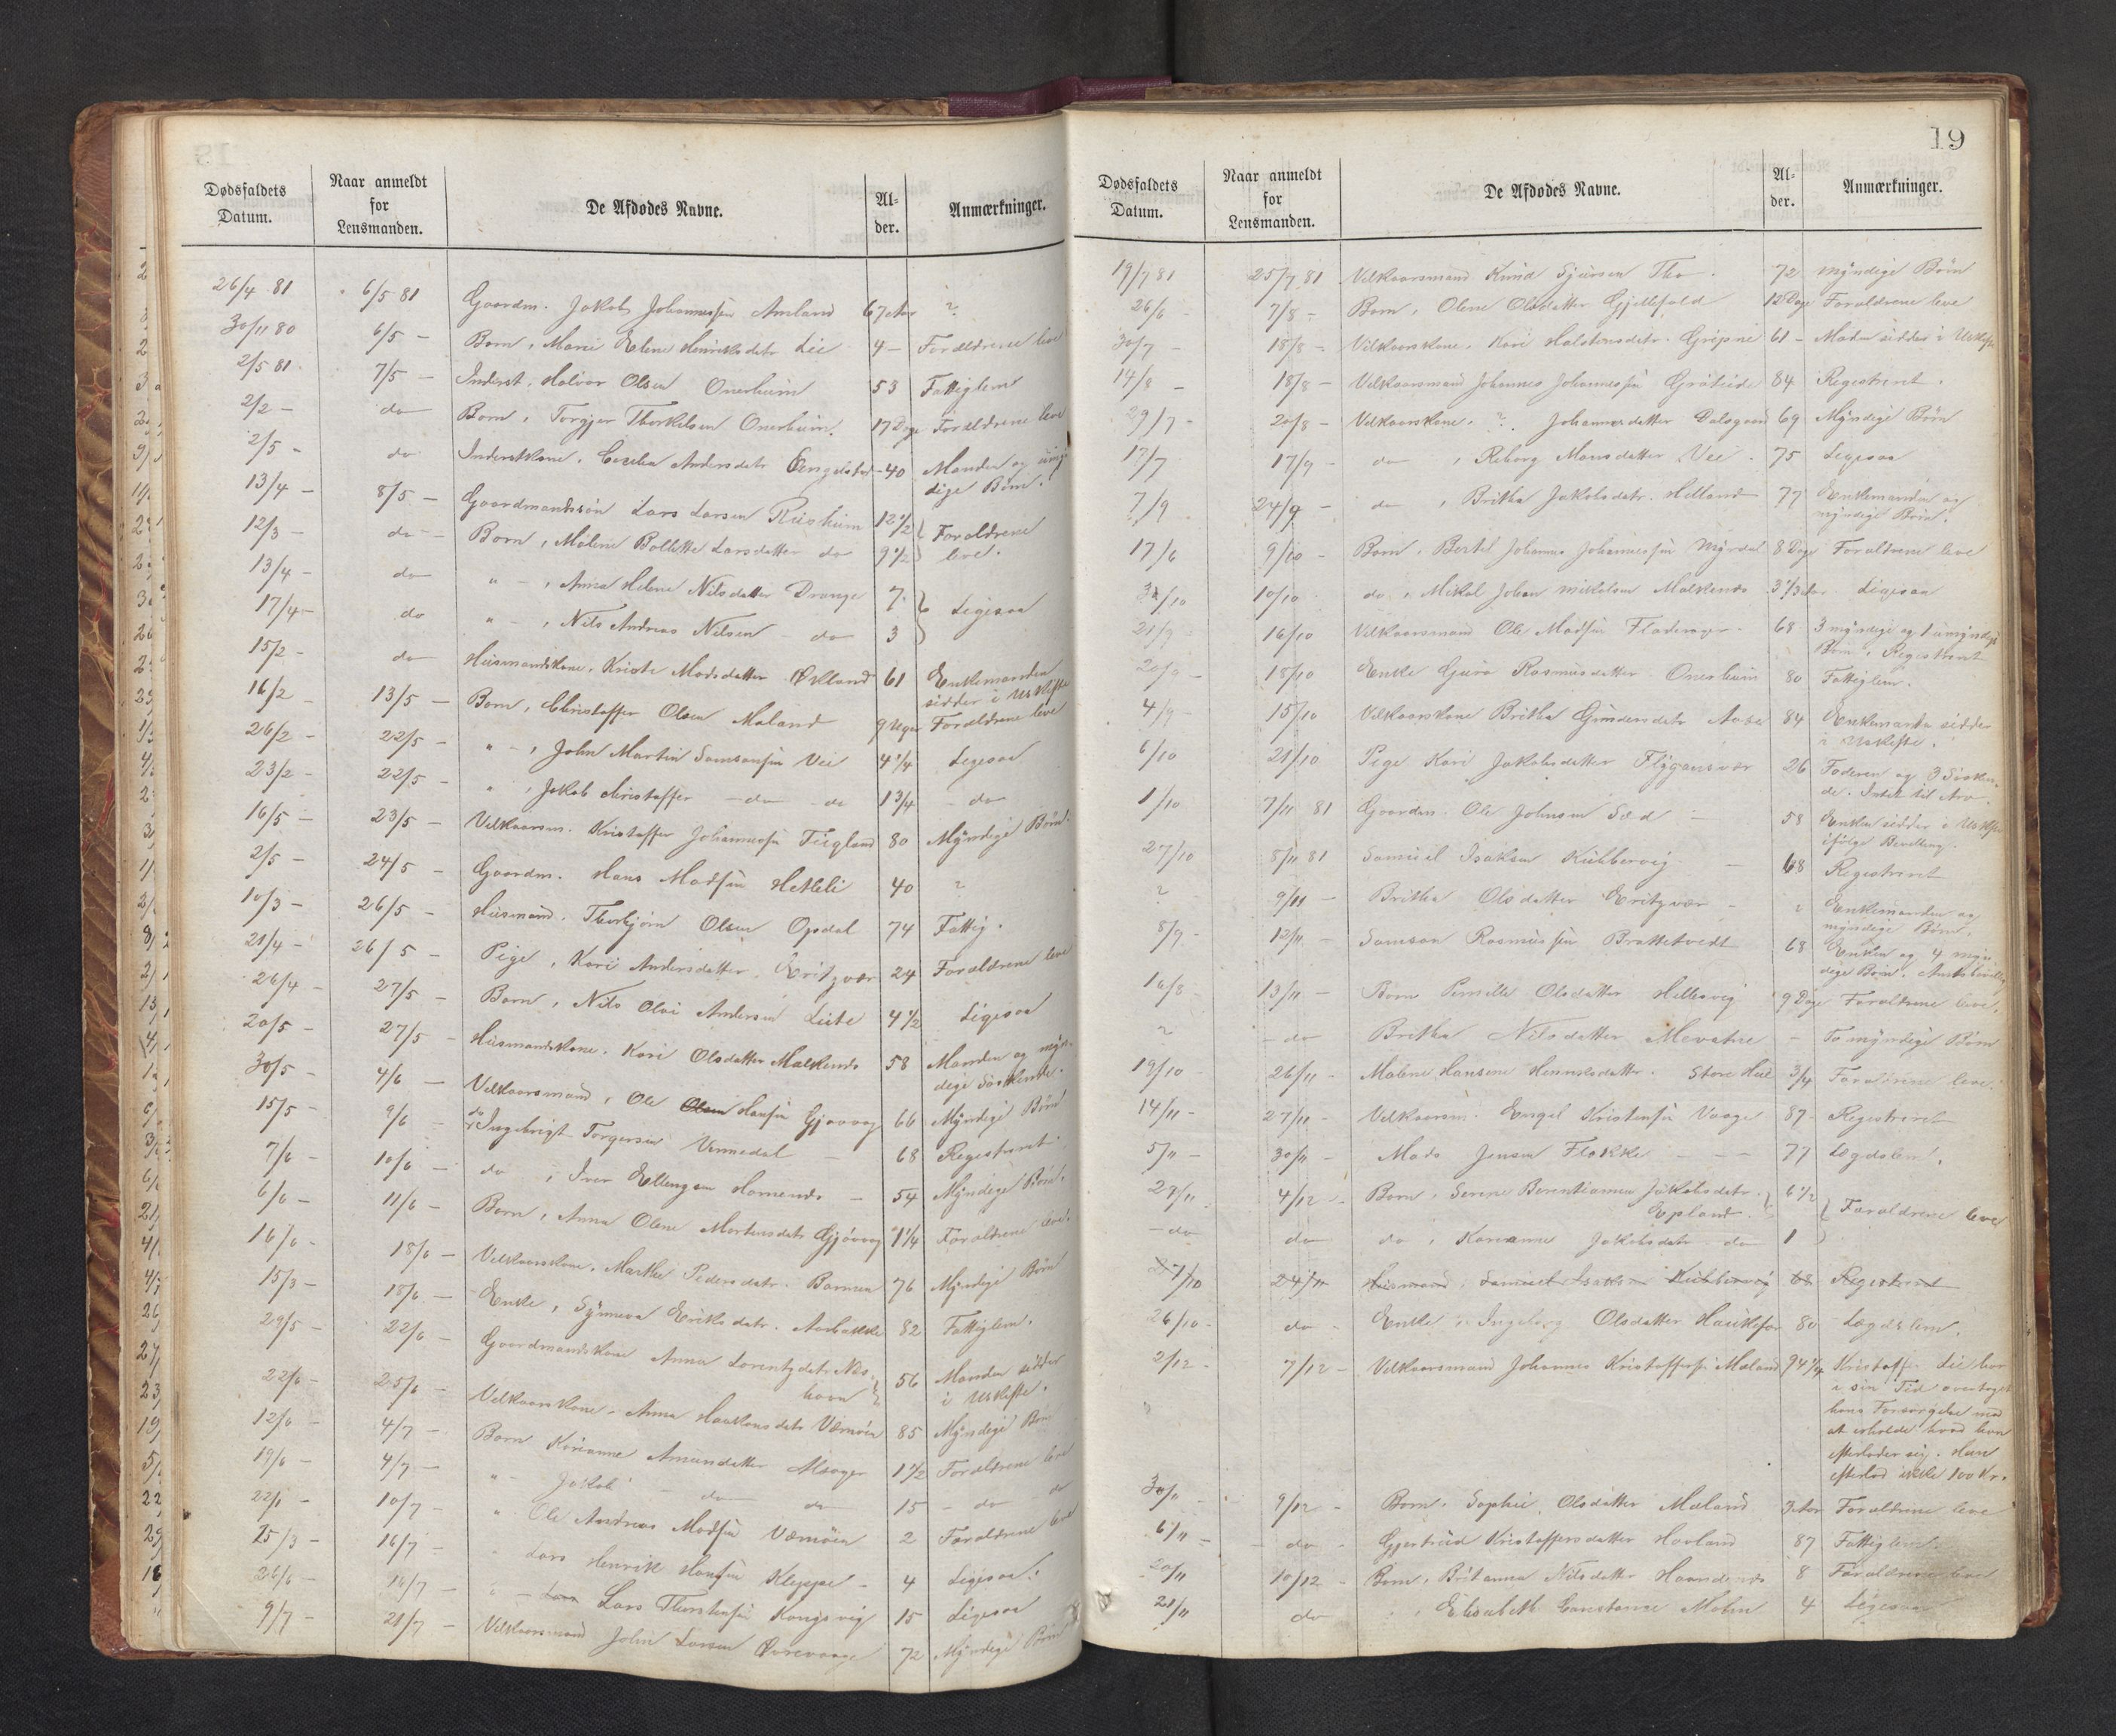 Dødsfaldets Datum. Naar anmeldt for Lensmanden. De Afdødes Navne. Al-der. Anmærkninger.
26/4 81 6/5 81 Gaardm. Jakob Johannessen Amland 67 Aar ?
30/11 80 6/5 — Barn, Marie Elene Henriksdatr Lie 4 — Forældrene leve
2/5 81 7/5 — Inderst, Halvor Olsen Onerheim 53 Fattiglem
2/2 — do Barn, Torgjer Thorkelsen Onerheim 17 Dage Forældrene leve
2/5 — do Inderstkone, Andersdatr 40 Manden og
dige Børn.
13/4 — 8/5 — Gaardmandssøn Lars Larsen 12 1/2 Forældrene
12/3 — do — Barn, Malene Bollette Larsdatter do 9 1/2 leve.
13/4 — do " — , Anna Helene Nilsdatter Drange 7
17/4 — do " — , Nils Andreas Nilsen — do 3 Ligesaa
15/2 — do Husmandskone, Kriste Madsdatter Økland 61 Enkemanden
sidder i Uskifte
16/2 13/5 — Barn, Christoffer Olsen Maland 9 Uger Forældrene leve
26/2 — 22/5 — " — , John Martin Samsonsen Vei 4 1/4 Ligesaa
23/2 — 22/5 — " , Jakob Christoffer — do — do 1 3/4 — do
16/5 — 23/5 — Vilkaarsm. Kristoffer Johannessen Teigland 80 Myndige Børn
2/5 — 24/5 — Gaardm. Hans Madsen Hetleli 40 ?
10/3 — 26/5 — Husmand. Thorbjørn Olsen Opdal 74 Fattig.
21/4 — 26/5 — Pige, Kari Andersdatter, Eritzvær 24 Forældrene leve
26/4 — 27/5 — Barn, Nils Olai Andersen Leite 4 1/2 Ligesaa
20/5 — 27/5 — Husmandskone, Kari Olsdatter Malkenes 58 Manden og myn-
dige Søskende.
30/5 — 4/6 — Vilkaarsmand, Ole Olsen Hansen Gjøvaag 66 Myndige Børn
15/5 — 9/6 — do Ingebrigt Torgersen Vinnedal — 68 Registreret
7/6 — 10/6 — do , Iver Ellingsen Hamenes — 54 Myndige Børn.
6/6 — 11/6 — Barn, Anna Olene Mortensdatr Gjøvaag 1 1/4 Forældrene leve.
16/6 — 18/6 — Vilkaarskone, Marthe Pedersdatr. Barmen 76 Myndige Børn
15/3 — 18/6 — Enke, Synneva Eriksdatr. Aarbakke 82 Fattiglem.
29/5 — 22/6 — Gaardmandskone Anna Lorentzdatr Næs-
havn 56 Manden sidder
i Uskifte.
22/6 — 25/6 — Vilkaarskone, Anna Haakonsdatr Værnøen 85 Myndige Børn
12/6 — 4/7 — Barn Karianne 1 1/2 Forældrene leve
19/6 — 4/7 — " — Jakob — do — do 15 — do — do
22/1 — 10/7 — " Ole Andreas Madsen Værnøen 2 Forældrene leve
25/3 — 16/7 — " Lars Henrik Hansen Kleppe — 4 Ligesaa.
26/6 — 16/7 — " — Lars Thorstensen Kongsvig 15 Ligesaa
9/7 — 21/7 — Vilkaarsmand John Larsen Øvrevaage 72 Myndige Børn
19
Dødsfaldets Datum. Naar anmeldt for Lensmanden. De Afdødes Navne. Al-der. Anmærkninger.
19/7 81 25/7 81 Vilkaarsmand Knud Sjursen Tho. 72 myndige Børn
26/6 — 7/8 — Barn, Olene Olsdatter Gjellefald 12 Dage Forældrene leve
30/7 — 18/8 — Vilkaarskone, Kari Halstensdatr. Gripne 61 — Maden sidder i Uskifte
14/8 — 18/8 — Vilkaarsmand Johannes Johannessen Grøteide 84 Registreret.
29/7 — 20/8 — Vilkaarskone, ?. Johannesdatter Dalsgaard 69 Myndige Børn
17/7 17/9 — do , Reborg Monsdatter Vei. 75 Ligesaa
7/9 24/9 — do , Britha Jakobsdatr. Helland 77 Enkemanden og
myndige Børn.
17/6 9/10 — Barn, Bertel Johannes Johannessen Myrdal 8 Dage Forældrene leve
3/10 10/10 do , Mikal Johan Mikalsen Malkenes 3 1/3 Aar Ligesaa
21/9 — 16/10 Vilkaarsmand Ole Madsen 68 3 myndige og 1 umyndig
Barn, Registreret
20/9 — 18/10 Enke Guro Rasmusdatter Onerheim 80 Fattiglem.
4/9 — 15/10 Vilkaarskone Britha Gundersdatr Aase 84 Enkemanden sidder
i Uskifte.
6/10 21/10 Pige Kari Jakobsdatter Flygansvær 26 Faderen og 3 Sösken-
de. Intet til Arv.
1/10 7/11 81 Gaardm. Ole Johnsen Sæd — 58 Enken sidder i Uskifte
ifølge Bevilling.
27/10 8/11 81 Samuel Isaksen Kubbervig — 68 Registreret
? 9/11 — Britha Olsdatter Eritzvær — ? Enkemanden og
myndige Børn.
8/9 — 12/11 — Samson Rasmussen Brattetvedt 68 Enken og 4 myn-
dige Børn.
16/8 13/11 — Barn Pernille Olsdatter Hellesvig 9 Dage Forældrene leve.
? — do Britha Nilsdatter Mevatne — To myndige Børn
19/10 — 26/11 — Malene Hansine Henriksdatter. Store Hu 3/4 Forældrene leve.
14/11 — 27/11 — Vilkaarsm. Engel Kristensen Vaage 87 — Registreret
5/11 — 30/11 — Mads Jensen Flokke — — — 77 Lægdslem.
27/11 4/12 — Barn, Serine Berentianna Jakobsdatr.
Opland. 6 1/2 Forældrene leve
— do do do , Karianne Jakobsdatr do 1
27/10 24/11 Husmand, Samuel Isaksen Kubbervig 68 Registreret
26/10 — do — Enke, Ingeborg Olsdatter 80 Lægdslem.
2/12 — 7/12 — Vilkaarsmand Johannes Kristoffersen Maland 94 1/4 Kristoff. Lie har
i sin Tid overtaget
hans Forsørgelse mod
at erholde hvad han
efterlader sig. Han
efterlod ikke 100 Kr.
30/11 — 9/12 — Barn, Sophie Olsdatter Maland 3 Aar Forældrene leve
6/11 — — do — Gjertrud Kristoffersdatter Havland 87 Fattiglem.
20/11 10/12 — Barn, Britanna Nilsdatter 8 Forældrene leve
21/11 do " , Elisabeth Constanse Malm 4 Ligesaa